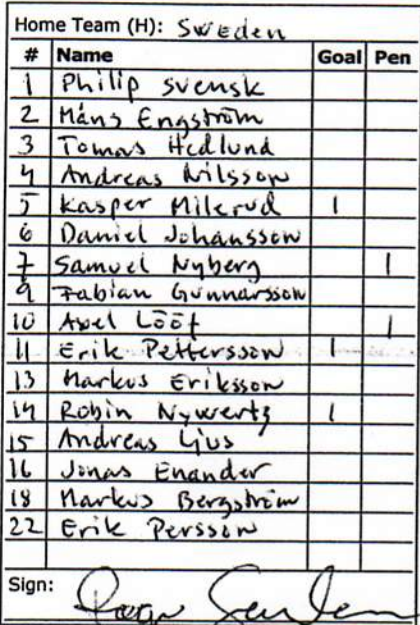 Home Team (H): Sweden
# Name Goal Pen
1 Philip Svensk
2 Måns Engström
3 Tomas Hedlund
4 Andreas Nilsson
5 Kasper Milerud 1
6 Daniel Johansson
7 Samuel Nyberg 1
9 Fabian Gunnarsson
10 Axel Lööf 1
11 Erik Pettersson 1
13 Markus Eriksson
14 Robin Nywertz 1
15 Andreas Ljus
16 Jonas Enander
18 Markus Bergström
22 Erik Persson
Sign: